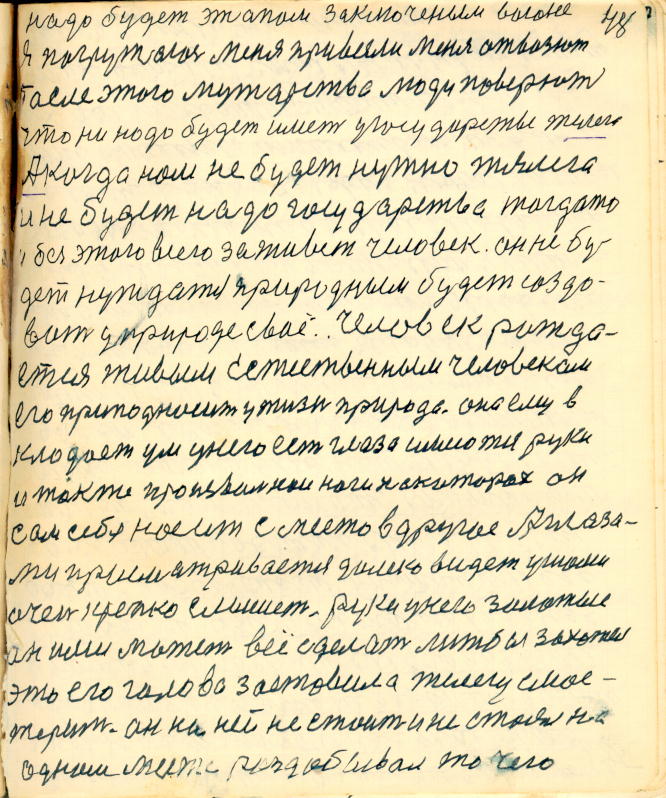 надо будет этапом заключеным вогоне 48
Я погружался меня привезли меня отвозют
После этого мытарства люди поверют
что ни надо будет имет у государстве телега
А когда нам не будет нужно тялега
и не будет надо государства тогдато
и без этого всего заживет человек. он не бу-
дет нуждатся природным будет создо-
ват у природе своё.. Человек рожда-
ется живым естественным человекам
его приподносит у жизн природа. она ему в
кладает ум у него ест глаза имеются руки
и также произвалнаи ноги на каторах он
сам себя носит с места в другое А глаза-
ми присматривается далеко видет ушами
очен крепко слышет. руки у него золотые
он ими может всё сделат литбы захател
это его галова заставила телегу смас-
терит. он на ней не стоит и не стоял на
одном месте раздобывал то чего